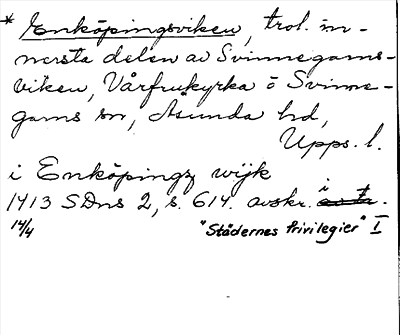 * Enköpingsviken, trol. in-
nersta delen av Svinnegarns-
viken, Vårfrukyrka o Svinne-
garns sn, Åsunda hd,
Upps. l.
i Enköpingz wijk
1413 SDns 2, s. 614. avskr. i
14/4 "Städernes Privilegier" I